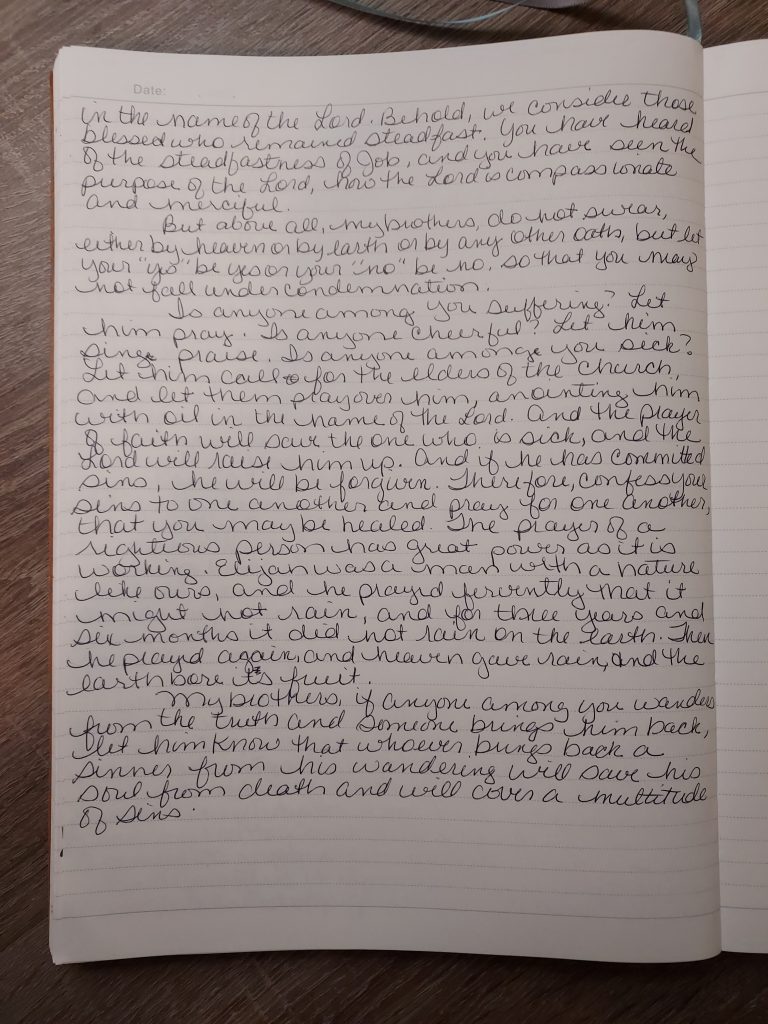 Date:
in the name of the Lord. Behold, we consider those
blessed who remained steadfast. You have heard
of the steadfastness of Job, and you have seen the
purpose of the Lord, how the Lord is compassionate
and merciful.
But above all, my brothers, do not swear,
either by heaven or by earth or by any other oath, but let
your "yes" be yes or your "no" be no, so that you may
not fall under condemnation.
Is anyone among you suffering? Let
him pray. Is anyone cheerful? Let him
sing praise. Is anyone among you sick?
Let him call for the elders of the church,
and let them pray over him, anointing him
with oil in the name of the Lord. And the prayer
of faith will save the one who is sick, and the
Lord will raise him up. And if he has committed
sins, he will be forgiven. Therefore, confess your
sins to one another and pray for one another,
that you may be healed. The prayer of a
rightious person has great power as it is
working. Elijah was a man with a nature
like ours, and he prayed fervently that it
might not rain, and for three years and
six months it did not rain on the earth. Then
he prayed again, and heaven gave rain, and the
earth bore its fruit.
My brothers, if anyone among you wanders
from the truth and someone brings him back,
let him know that whoever brings back a
sinner from his wandering will save his
soul from death and will cover a multitude
of sins.